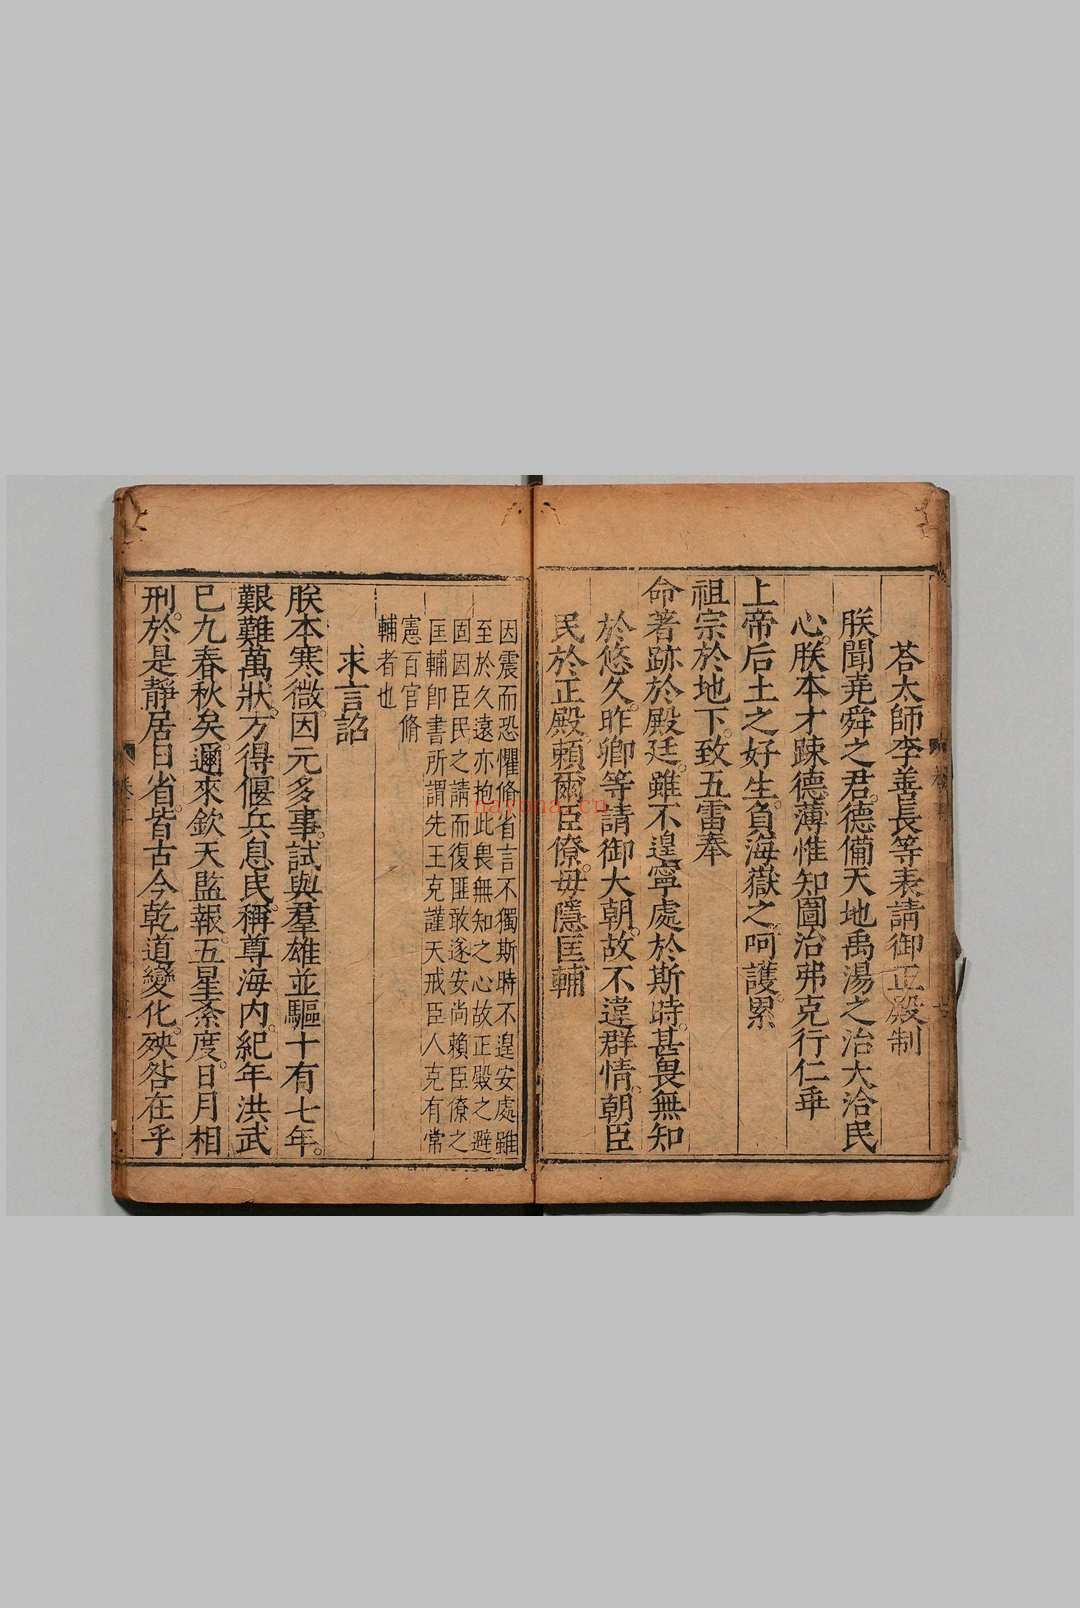 荅太師李善長等表請御正殿制
朕聞堯舜之君。德備天地禹湯之治大洽民
心。朕本才踈德薄惟知圖治弗克行仁乖
上帝后土之好生。負海嶽之呵護。累
祖宗於地下。致五雷奉
命著跡於殿廷。雖不遑寧處於斯時。甚畏無知
於悠久。昨卿等請御大朝。故不違群情。朝臣
民於正殿。頼爾臣僚。毋隱匡輔
因震而恐懼脩省言不獨斯時不遑安處雖
至於久遠亦抱此畏無知之心故正殿之避
固因臣民之請而復匪敢遂安尚賴臣僚之
匡輔卽書所謂先王克謹天戒臣人克有常
憲百官脩
輔者也
求言詔
朕本寒微。因元多事。試與羣雄並驅十有七年。
艱難萬狀。方得偃兵息民。稱尊海內。紀年洪武
已九春秋矣。邇來欽天監報。五星紊度。日月相
刑。於是靜居日省。皆古今乾道變化。殃咎在乎
nayona.cn